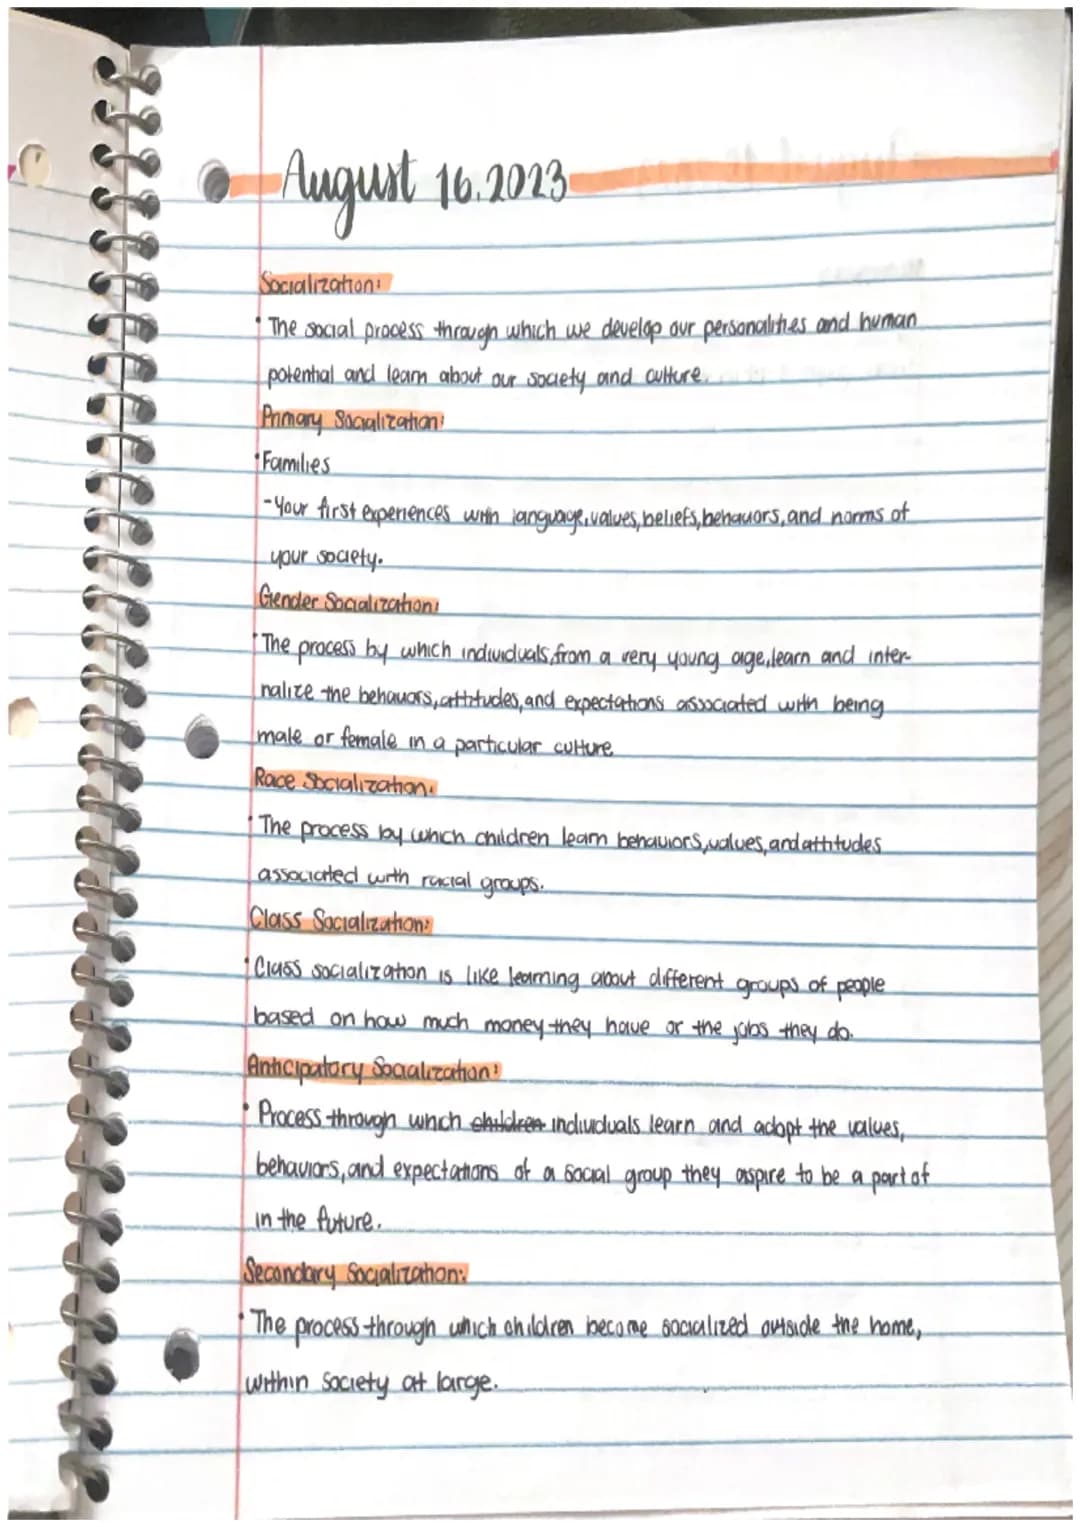 August 16.2023
Socialization:
• The social process through which we develop our personalities and human
potential and learn about our society and culture.
Primary Socialization:
• Families
- Your first experiences with language, values, beliefs, behaviors, and norms of
your society.
Gender Socialization:
• The process by which individuals, from a very young age, learn and inter-
nalize the behaviors, attitudes, and expectations associated with being
male or female in a particular culture.
Race Socialization:
• The process by which children learn behaviors, values, and attitudes
associated with racial groups.
Class Socialization:
• Class socialization is like learning about different groups of people
based on how much money they have or the jobs they do.
Anticipatory Socialization:
• Process through which children individuals learn and adopt the values,
behaviors, and expectations of a social group they aspire to be a part of
in the future.
Secondary Socialization:
• The process through which children become socialized outside the home,
within society at large.